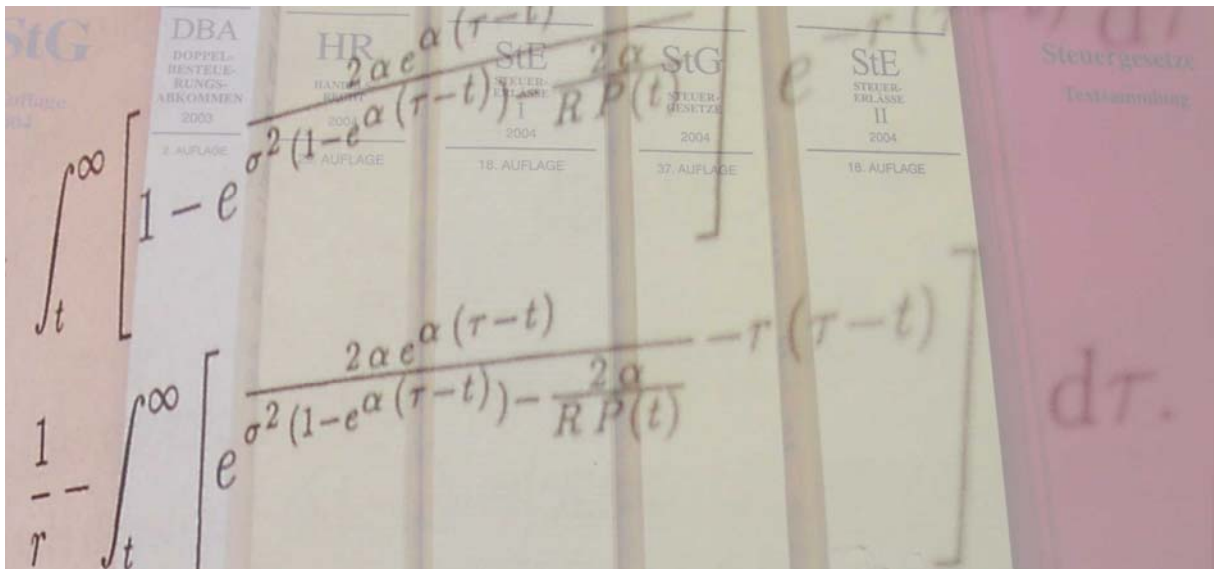 StG
DBA
DOPPEL-
BESTEUE-
RUNGS-
ABKOMMEN
2003
2. AUFLAGE
HR
2004
AUFLAGE
StE
STEUER-
ERLASSE
I
2004
18. AUFLAGE
StG
STEUER-
GESETZE
2004
37. AUFLAGE
StE
STEUER-
ERLASSE
II
2004
18. AUFLAGE
Steuergesetze
Textsammlung
∫_t^∞ [1 − e^{\frac{2 α e^{α (τ−t)}}{σ^2 (1−e^{α (τ−t)})− \frac{2 α}{R P(t)}}}] e^{−r (τ−t)} dτ
\frac{1}{r} − ∫_t^∞ [e^{\frac{2 α e^{α (τ−t)}}{σ^2 (1−e^{α (τ−t)})− \frac{2 α}{R P(t)}} −r (τ−t)}] dτ.